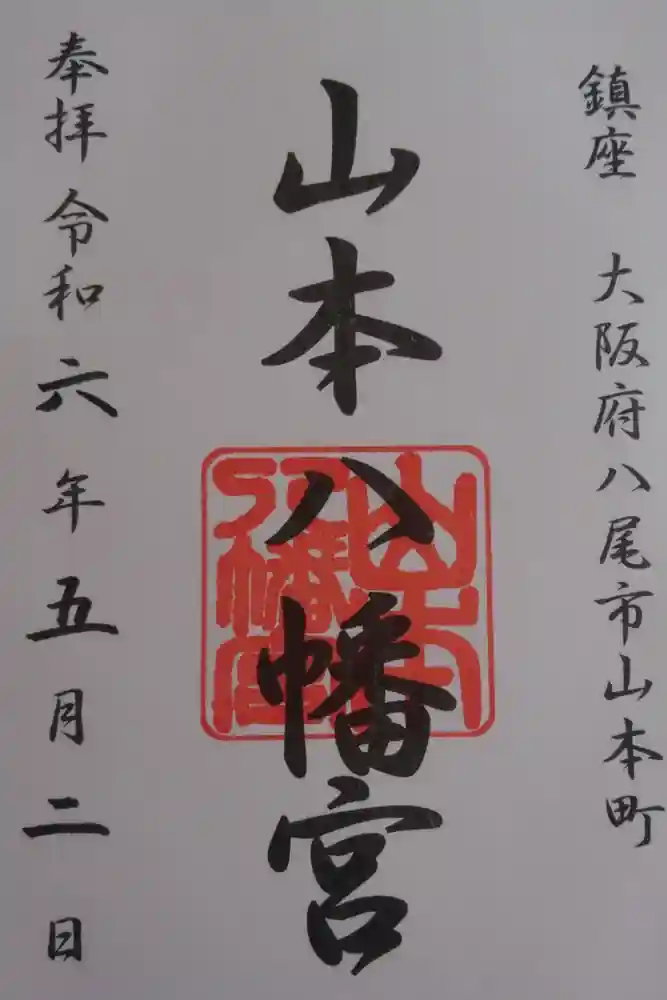 鎮座 大阪府八尾市山本町
山本八幡宮
山本八幡宮
奉拝 令和六年五月二日